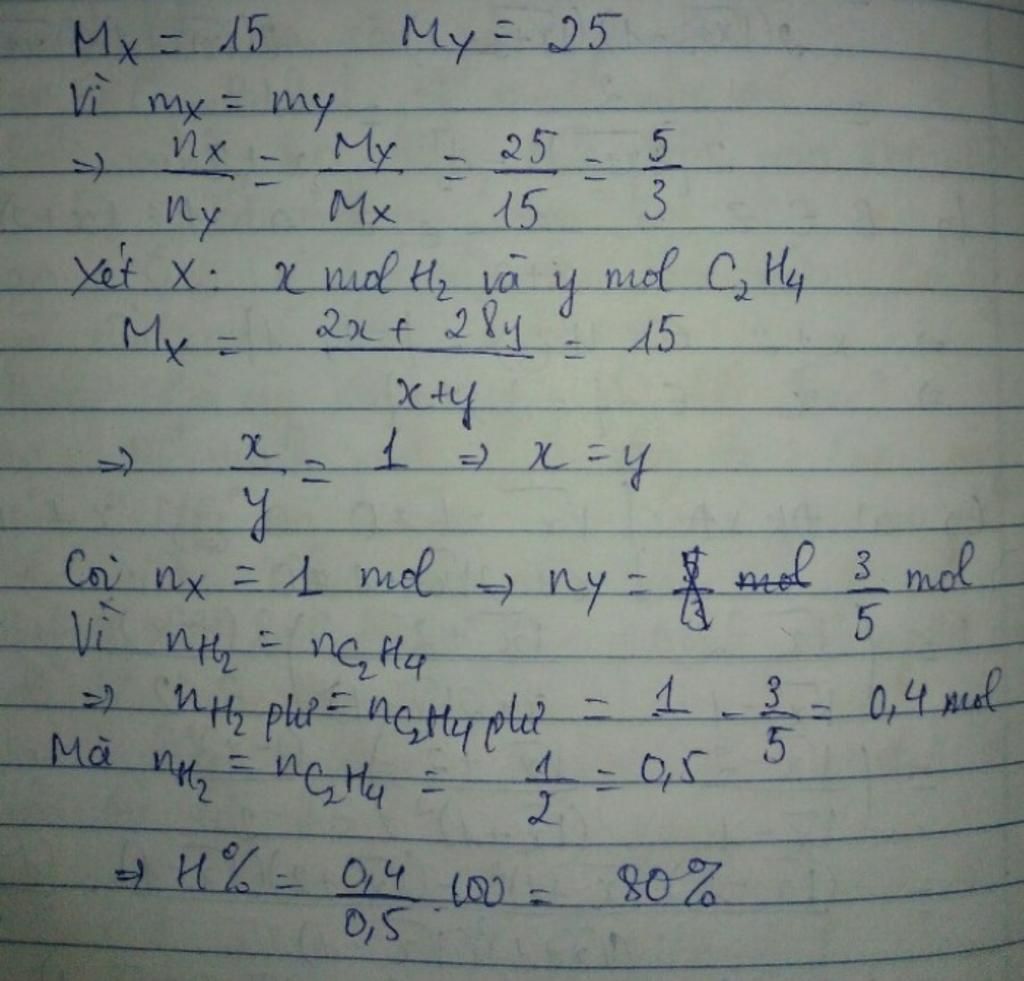 Mx = 15 My = 25
Vì mx = my
=> nx/ny = My/Mx = 25/15 = 5/3
Xét X: x mol H2 và y mol C2H4
Mx = (2x + 28y)/(x+y) = 15
=> x/y = 1 => x = y
Coi nx = 1 mol => ny = mol 3/5 mol
Vì nH2 = nC2H4
=> nH2 pứ = nC2H4 pứ = 1 - 3/5 = 0,4 mol
Mà nH2 = nC2H4 = 1/2 = 0,5
=> H% = 0,4/0,5 . 100 = 80%